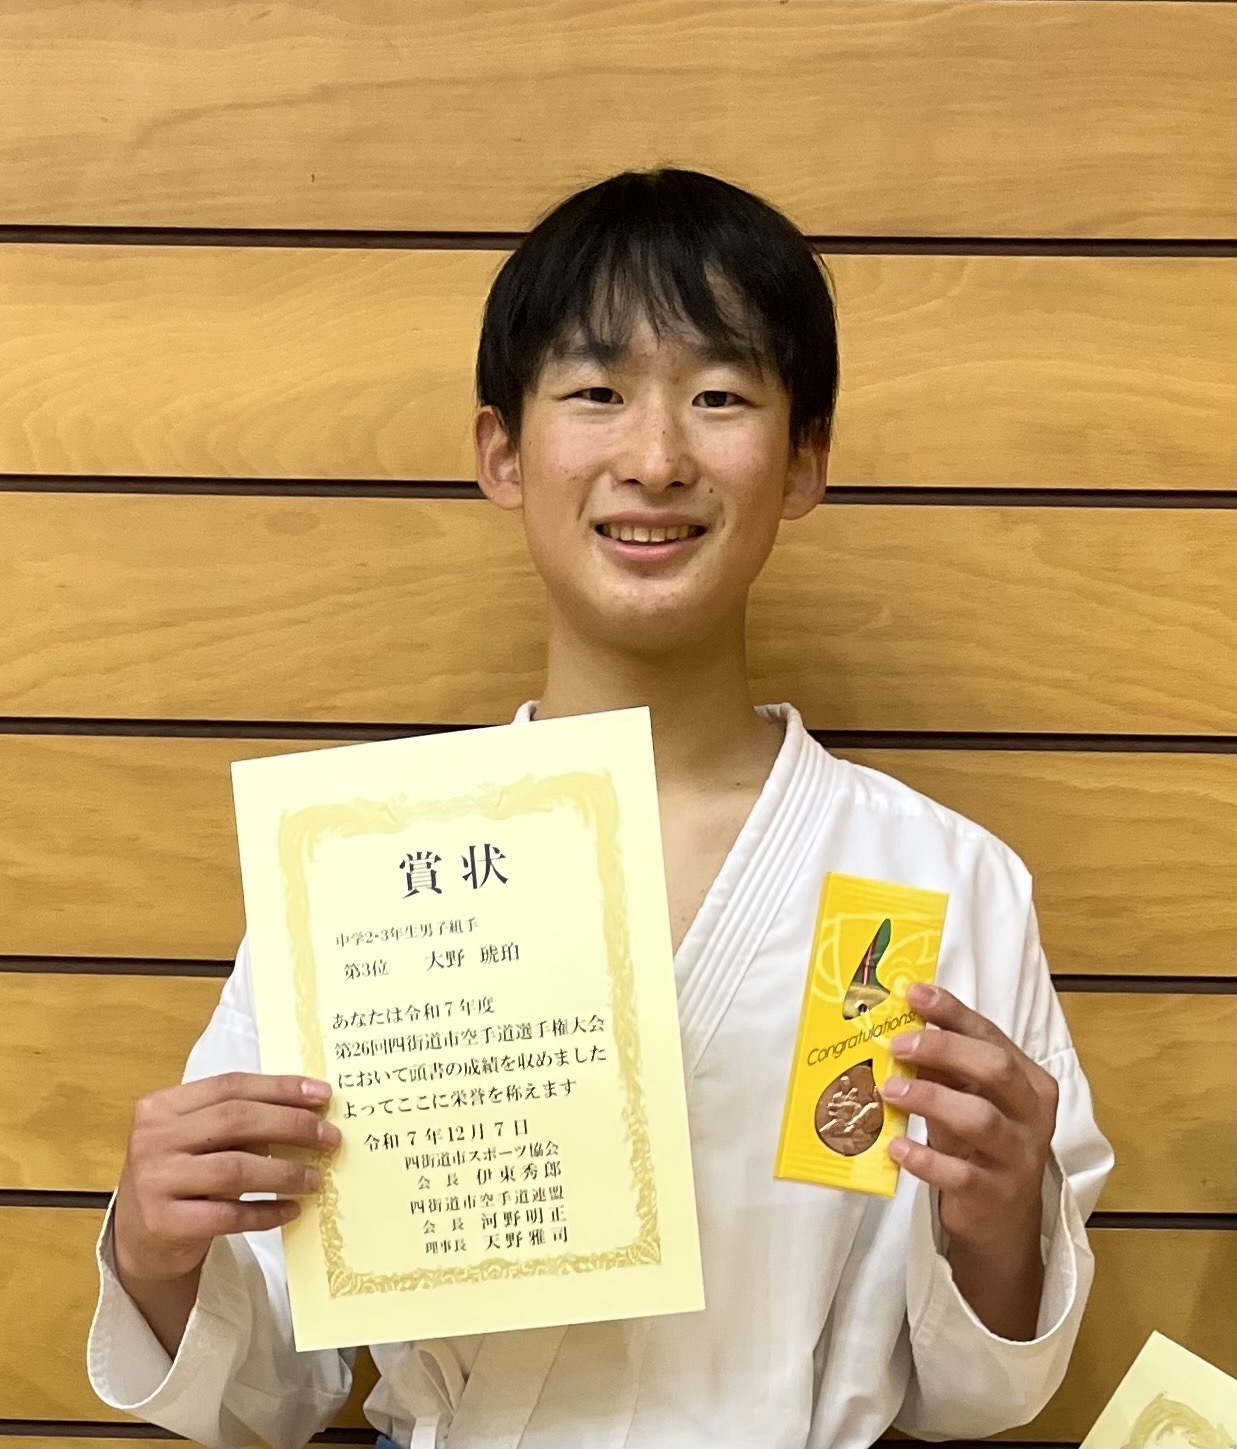 賞状
中学2・3年生男子組手
第3位 大野 琥珀
あなたは令和7年度
第26回四街道市空手道選手権大会
において頭書の成績を収めました
よってここに栄誉を称えます
令和7年12月7日
四街道市スポーツ協会
会長 伊東秀郎
四街道市空手道連盟
会長 河野明正
理事長 天野雅司
Congratulations!